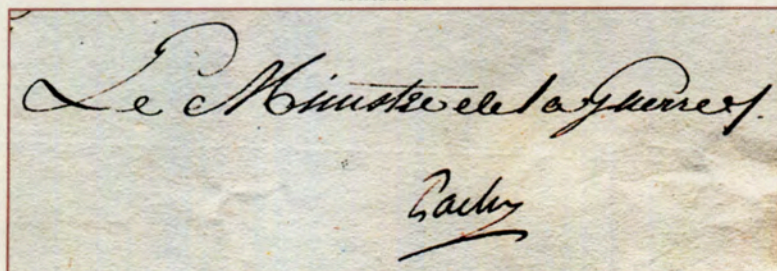 Le Ministre de la Guerre
Pache